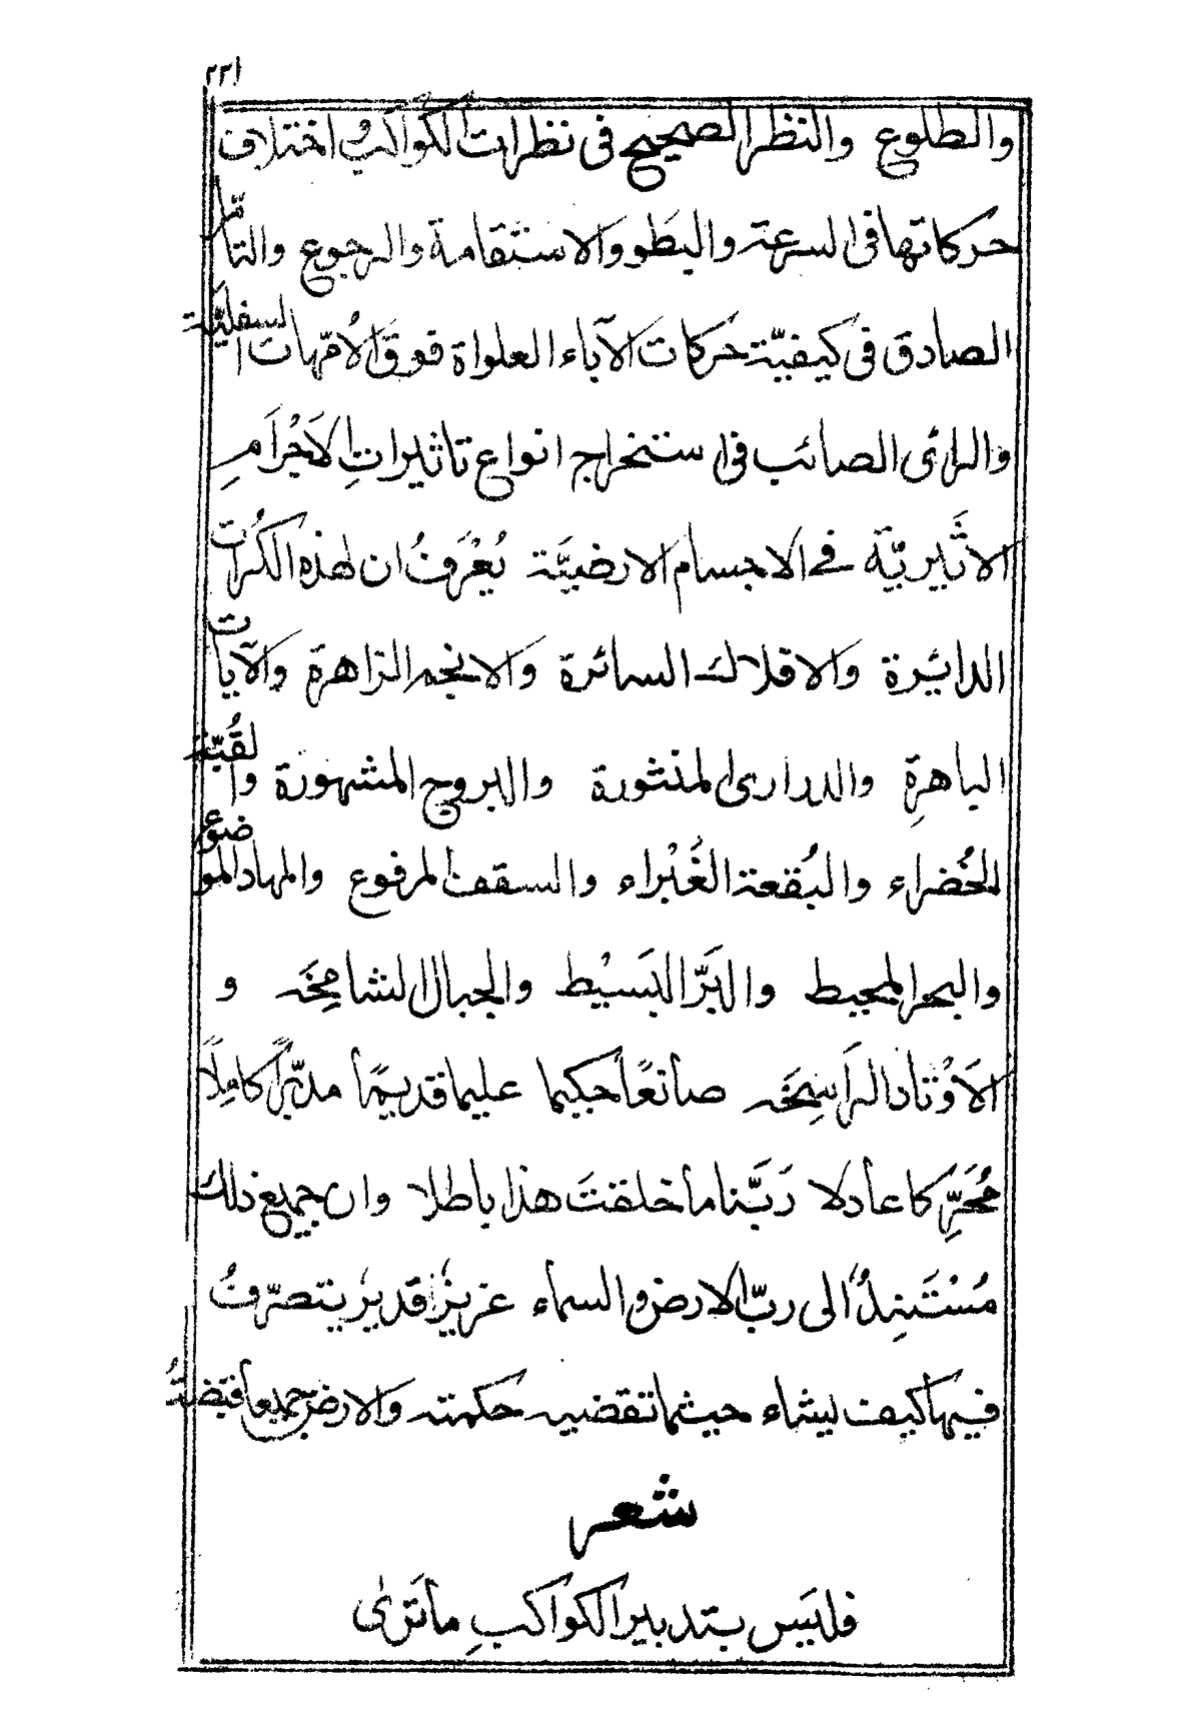 ٢٣١
والطلوع والنظر الصحيح فى نظرات الكواكب واختلاف
حركاتها فى السرعة والبطو والاستقامة والرجوع والتأمّر
الصادق فى كيفيّة حركات الآباء العلواة فوق الأُمّهات السفليّة
والرائ الصائب فى استخراج انواع تاثيرات الاَجْرَامِ
الاثَيريّة فى الاجسام الارضيَّة يُعْرَفُ ان لهذه الكُرات
الدائيرة والافلاك السائرة والانجم الزاهرة والآيات
الباهرةِ والدرارى المنثورة والبروج المشهورة والقُبّة
الخُضراء والبُقعة الغُبْراء والسقف المرفوع والمهاد الموضوع
والبحر المحيط والبَرّ البَسيْط والجبال الشامِخَه و
الاَوْتاد الرَاسِخَه صانعًا حكيما عليما قديمًا مدبّراً كاملاً
مُحَرِّكا عادلا رَبَّنا ما خلقتَ هذا باطلا وان جميع ذلك
مُسْتَنِدٌ الى ربّ الارض والسماء عزيزٌ قديرٌ يتصرّفُ
فيها كيف يشاء حيثما تقضيه حكمته والارض جميعا قبضتُه
شعر
فليَس بتدبير الكواكبِ ما تَرىٰ